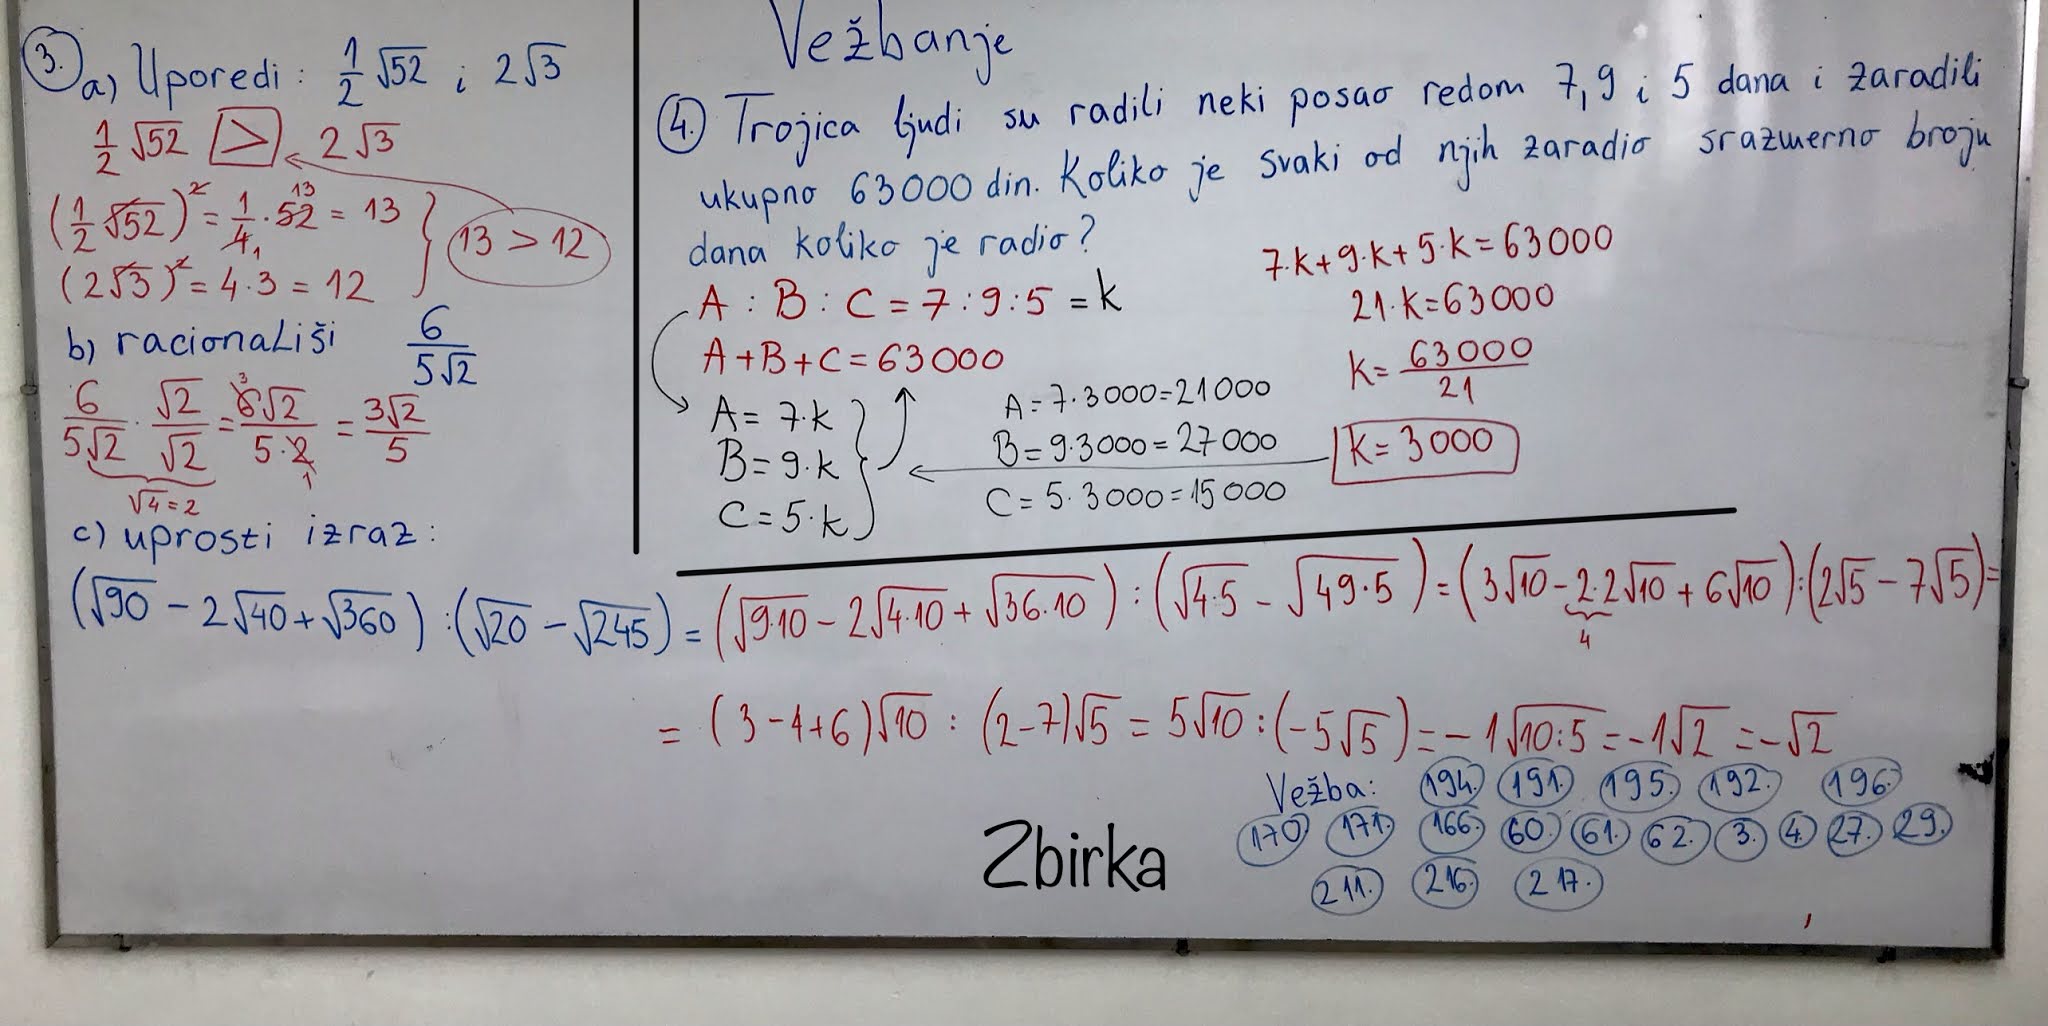 Vežbanje
3. a) Uporedi: 1/2 √52 i 2√3
1/2 √52 > 2√3
(1/2 √52)² = 1/4 · 52 = 13
13
1
(2√3)² = 4·3 = 12
13 > 12
b) racionališi 6/(5√2)
6/(5√2) · √2/√2 = 6√2/(5·2) = 3√2/5
3
1
√4=2
c) uprosti izraz:
(√90 - 2√40 + √360) : (√20 - √245) = (√9·10 - 2√4·10 + √36·10) : (√4·5 - √49·5) = (3√10 - 2·2√10 + 6√10) : (2√5 - 7√5) =
4
= (3-4+6)√10 : (2-7)√5 = 5√10 : (-5√5) = -1√10:5 = -1√2 = -√2
4. Trojica ljudi su radili neki posao redom 7, 9 i 5 dana i zaradili
ukupno 63000 din. Koliko je svaki od njih zaradio srazmerno broju
dana koliko je radio?
A : B : C = 7 : 9 : 5 = k
A + B + C = 63000
A = 7·k
B = 9·k
C = 5·k
7·k + 9·k + 5·k = 63000
21·k = 63000
k = 63000/21
k = 3000
A = 7·3000 = 21000
B = 9·3000 = 27000
C = 5·3000 = 15000
Vežba: 194. 191. 195. 192. 196.
Zbirka
170 171. 166. 60. 61. 62. 3. 4. 27. 29.
211. 216. 217.